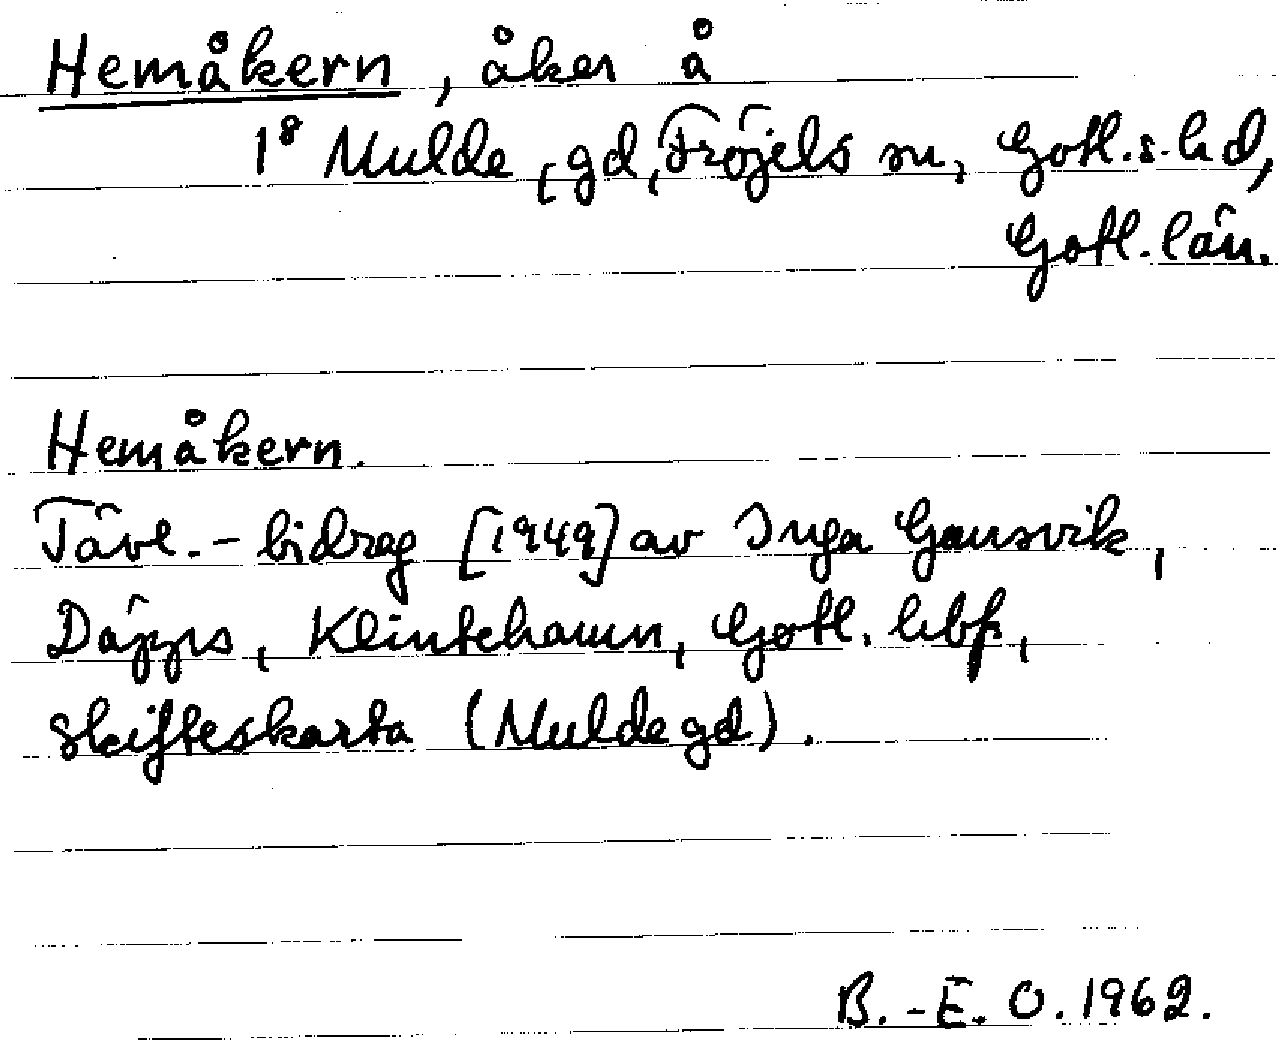 Hemåkern, åker å
1⁸ Mulde, gd, Fröjels sn, Gotl.s.hd,
Gotl. län.
Hemåkern.
Tävl.-bidrag [1949] av Inga Gansvik,
Däpps, Klintehamn, Gotl. hbf,
Skifteskarta (Mulde gd).
B.-E. O. 1962.